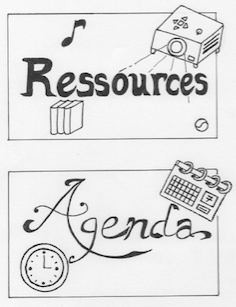 Ressources
Agenda